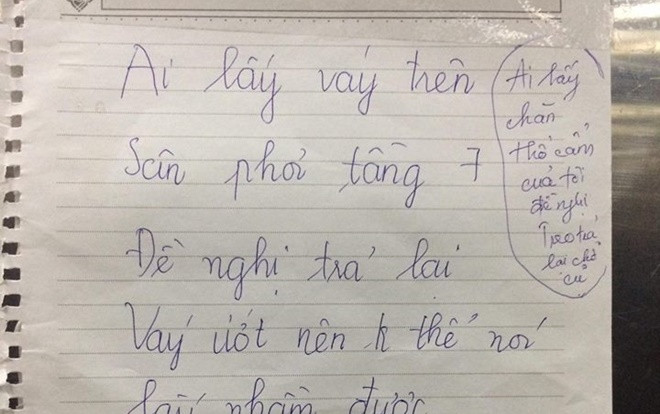 Ai lấy váy trên
Sân phơi tầng 7
Đề nghị trả lại
Váy ướt nên k thể nói
lấy nhầm được
Ai lấy
chăn
thổ cẩm
của tôi
đề nghị
Treo trả
lại chỗ
cũ